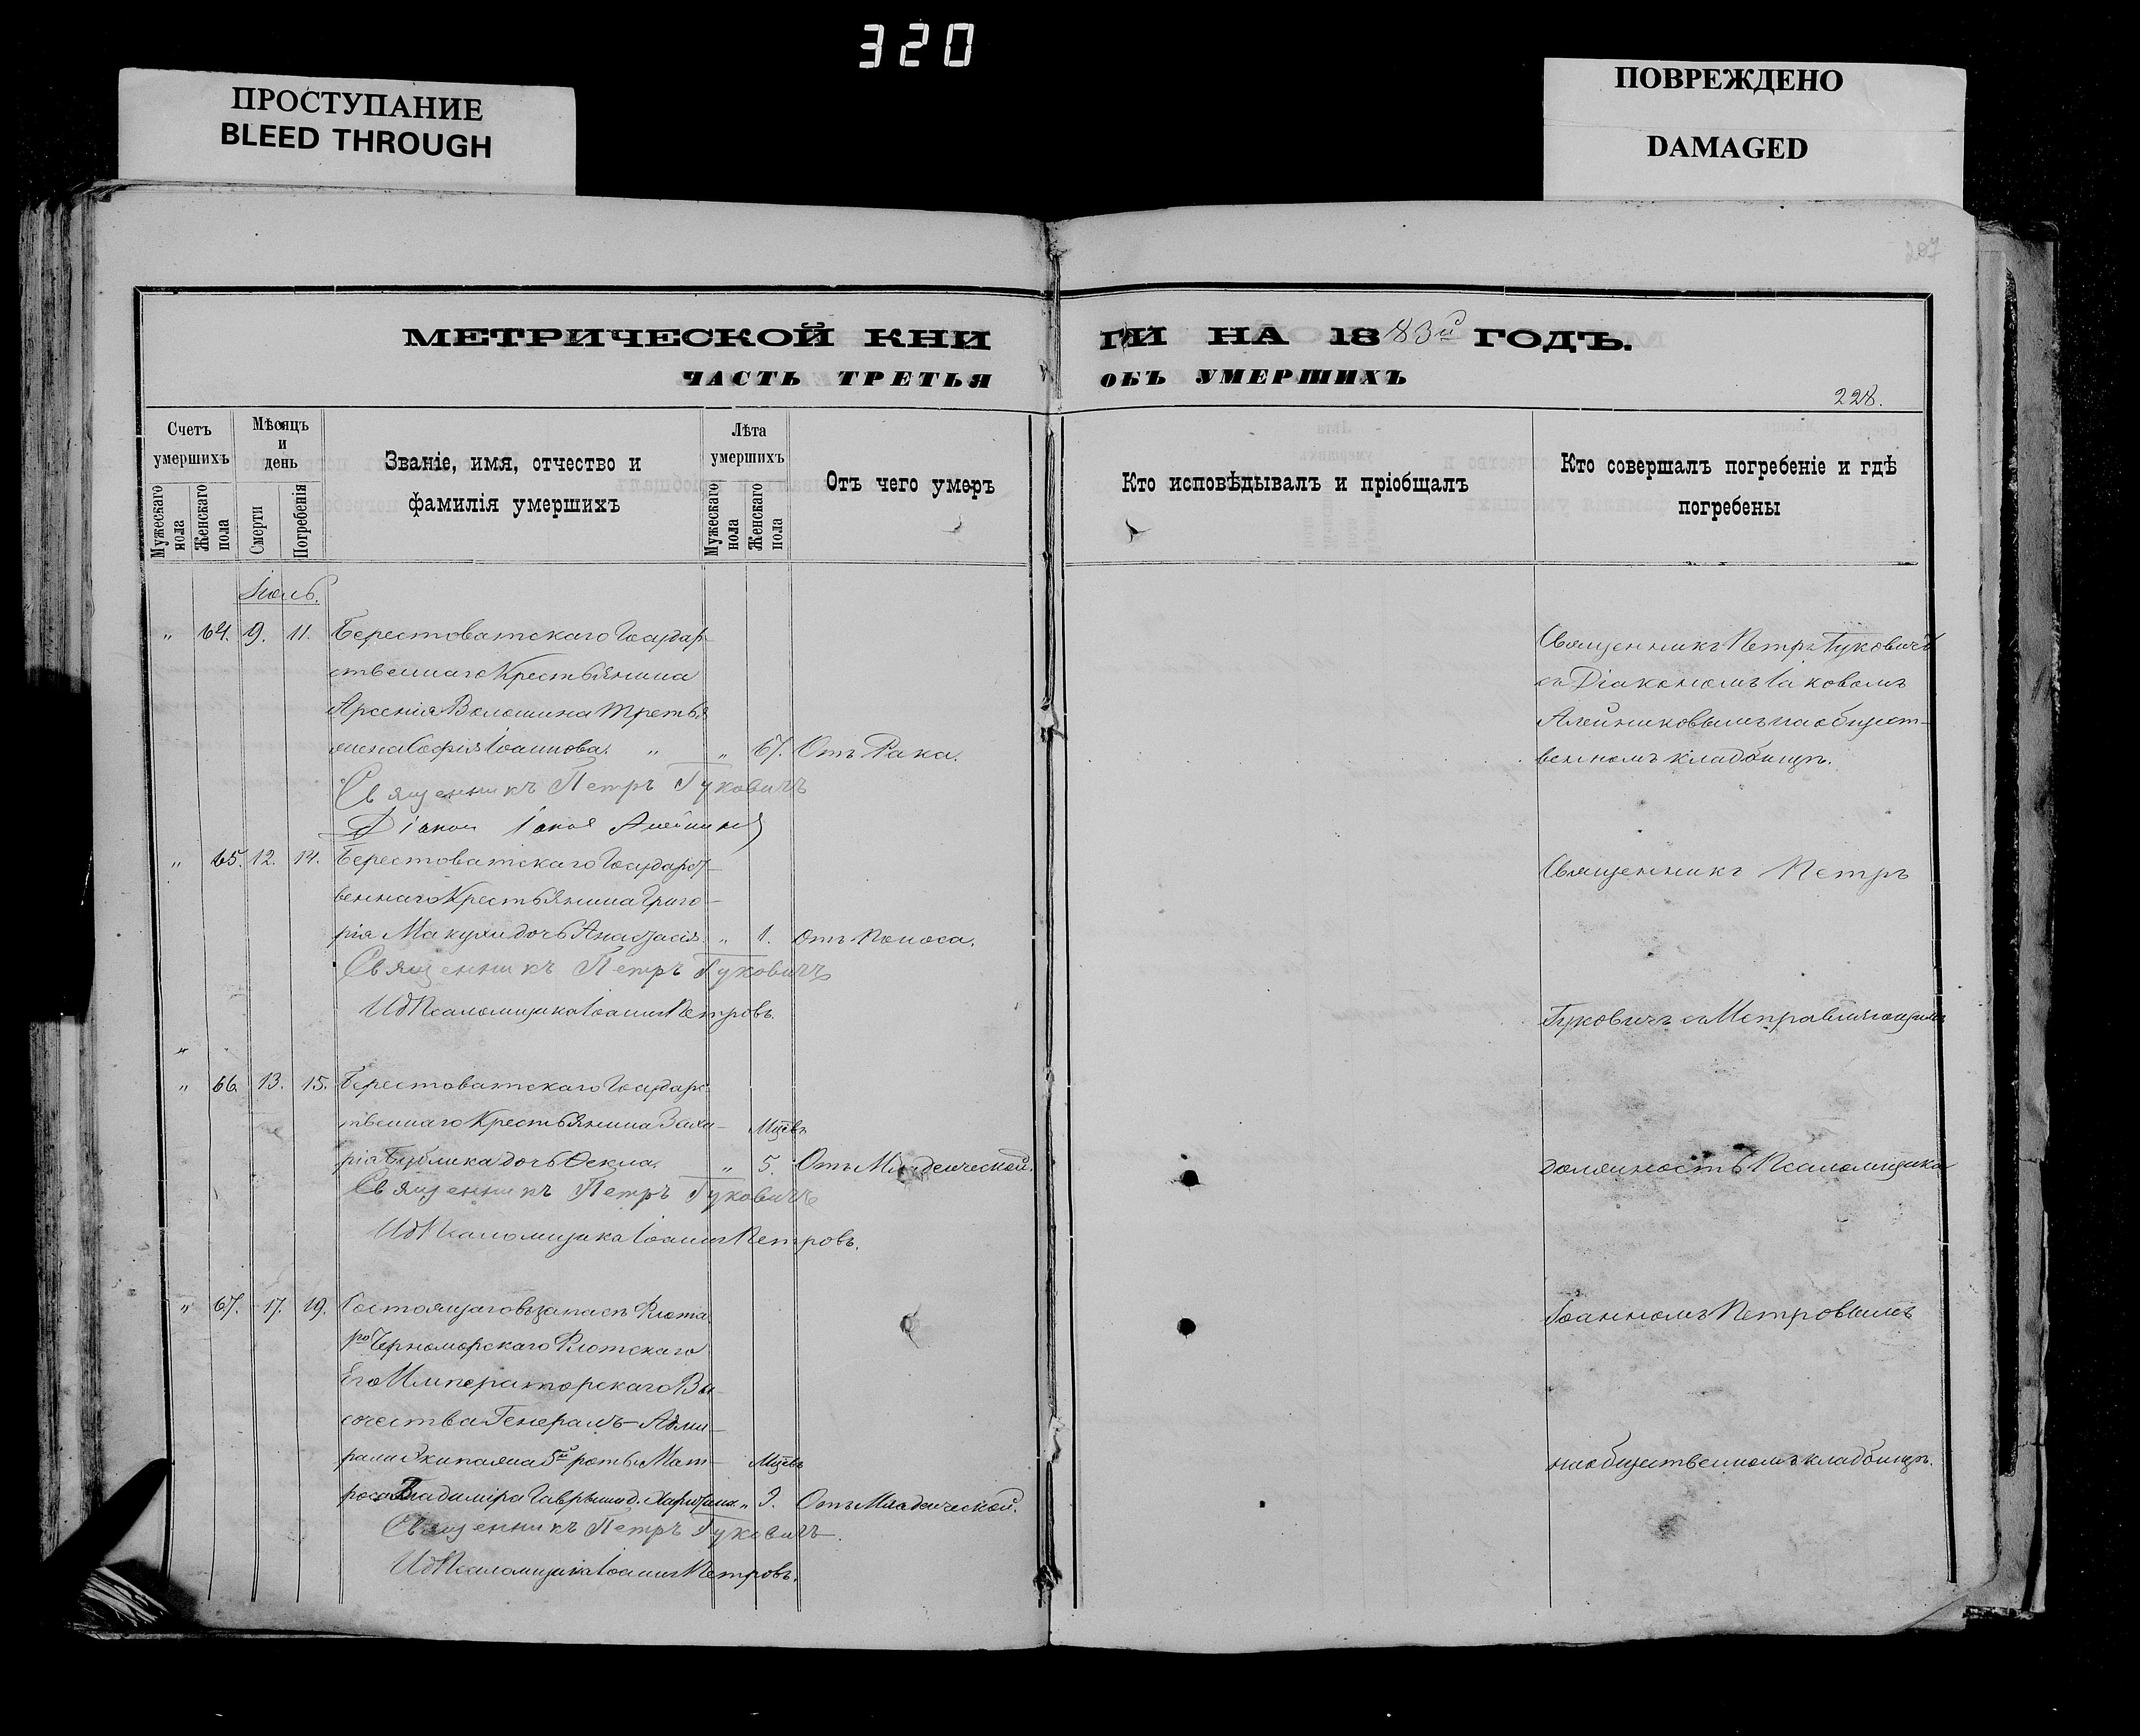 320
ПРОСТУПАНИЕ
BLEED THROUGH
ПОВРЕЖДЕНО
DAMAGED
207
МЕТРИЧЕСКОЙ КНИ
ГИ НА 1883й ГОДЪ.
ЧАСТЬ ТРЕТЬЯ
ОБЪ УМЕРШИХЪ
228.
Счетъ умершихъ
Мужескаго пола
Женскаго пола
Мѣсяцъ и день
Смерти
Погребенія
Званіе, имя, отчество и фамилія умершихъ
Лѣта умершихъ
Мужескаго пола
Женскаго пола
Отъ чего умеръ
Кто исповѣдывалъ и пріобщалъ
Кто совершалъ погребеніе и гдѣ погребены
Іюль.
„ 64. 9. 11. Берестоватскаго Государ-
ственнаго Крестьянина
Арсенія Волошина третья
жена Софія Іоаннова. „ „ 67. Отъ Рака.
Священникъ Петръ Гуковичъ
Діакон Іаков Алейников
Священникъ Петръ Гуковичъ
съ Діакономъ Іаковомъ
Алейниковымъ на общест-
венномъ кладбищѣ.
„ 65. 12. 14. Берестоватскаго Государст-
веннаго Крестьянина Григо-
рія Макухи дочь Анастасія. „ 1. Отъ Поноса.
Священникъ Петръ Гуковичъ
Ид Псаломщика Іоаннъ Петровъ.
„
„ 66. 13. 15. Берестоватскаго Государс-
твеннаго Крестьянина Заха-
рія Бублика дочь Ѳекла. „ Мцевъ 5. Отъ Младенческой.
Священникъ Петръ Гуковичъ
Ид Псаломщика Іоаннъ Петровъ.
„ 67. 17. 19. Состоящаго въ запасѣ Флота
го Черноморскаго Флотскаго
Его Императорскаго Вы-
сочества Генералъ-Адми-
рала Экипажа 5й роты Мат-
роса Владиміра Гаврыша д. Харитина „ Мцевъ 9. Отъ Младенческой.
Священникъ Петръ Гуковичъ.
Ид Псаломщика Іоаннъ Петровъ.
Священникъ Петръ
Гуковичъ съ Исправляющимъ
должность Псаломщика
Іоанномъ Петровымъ
на общественномъ кладбищѣ.